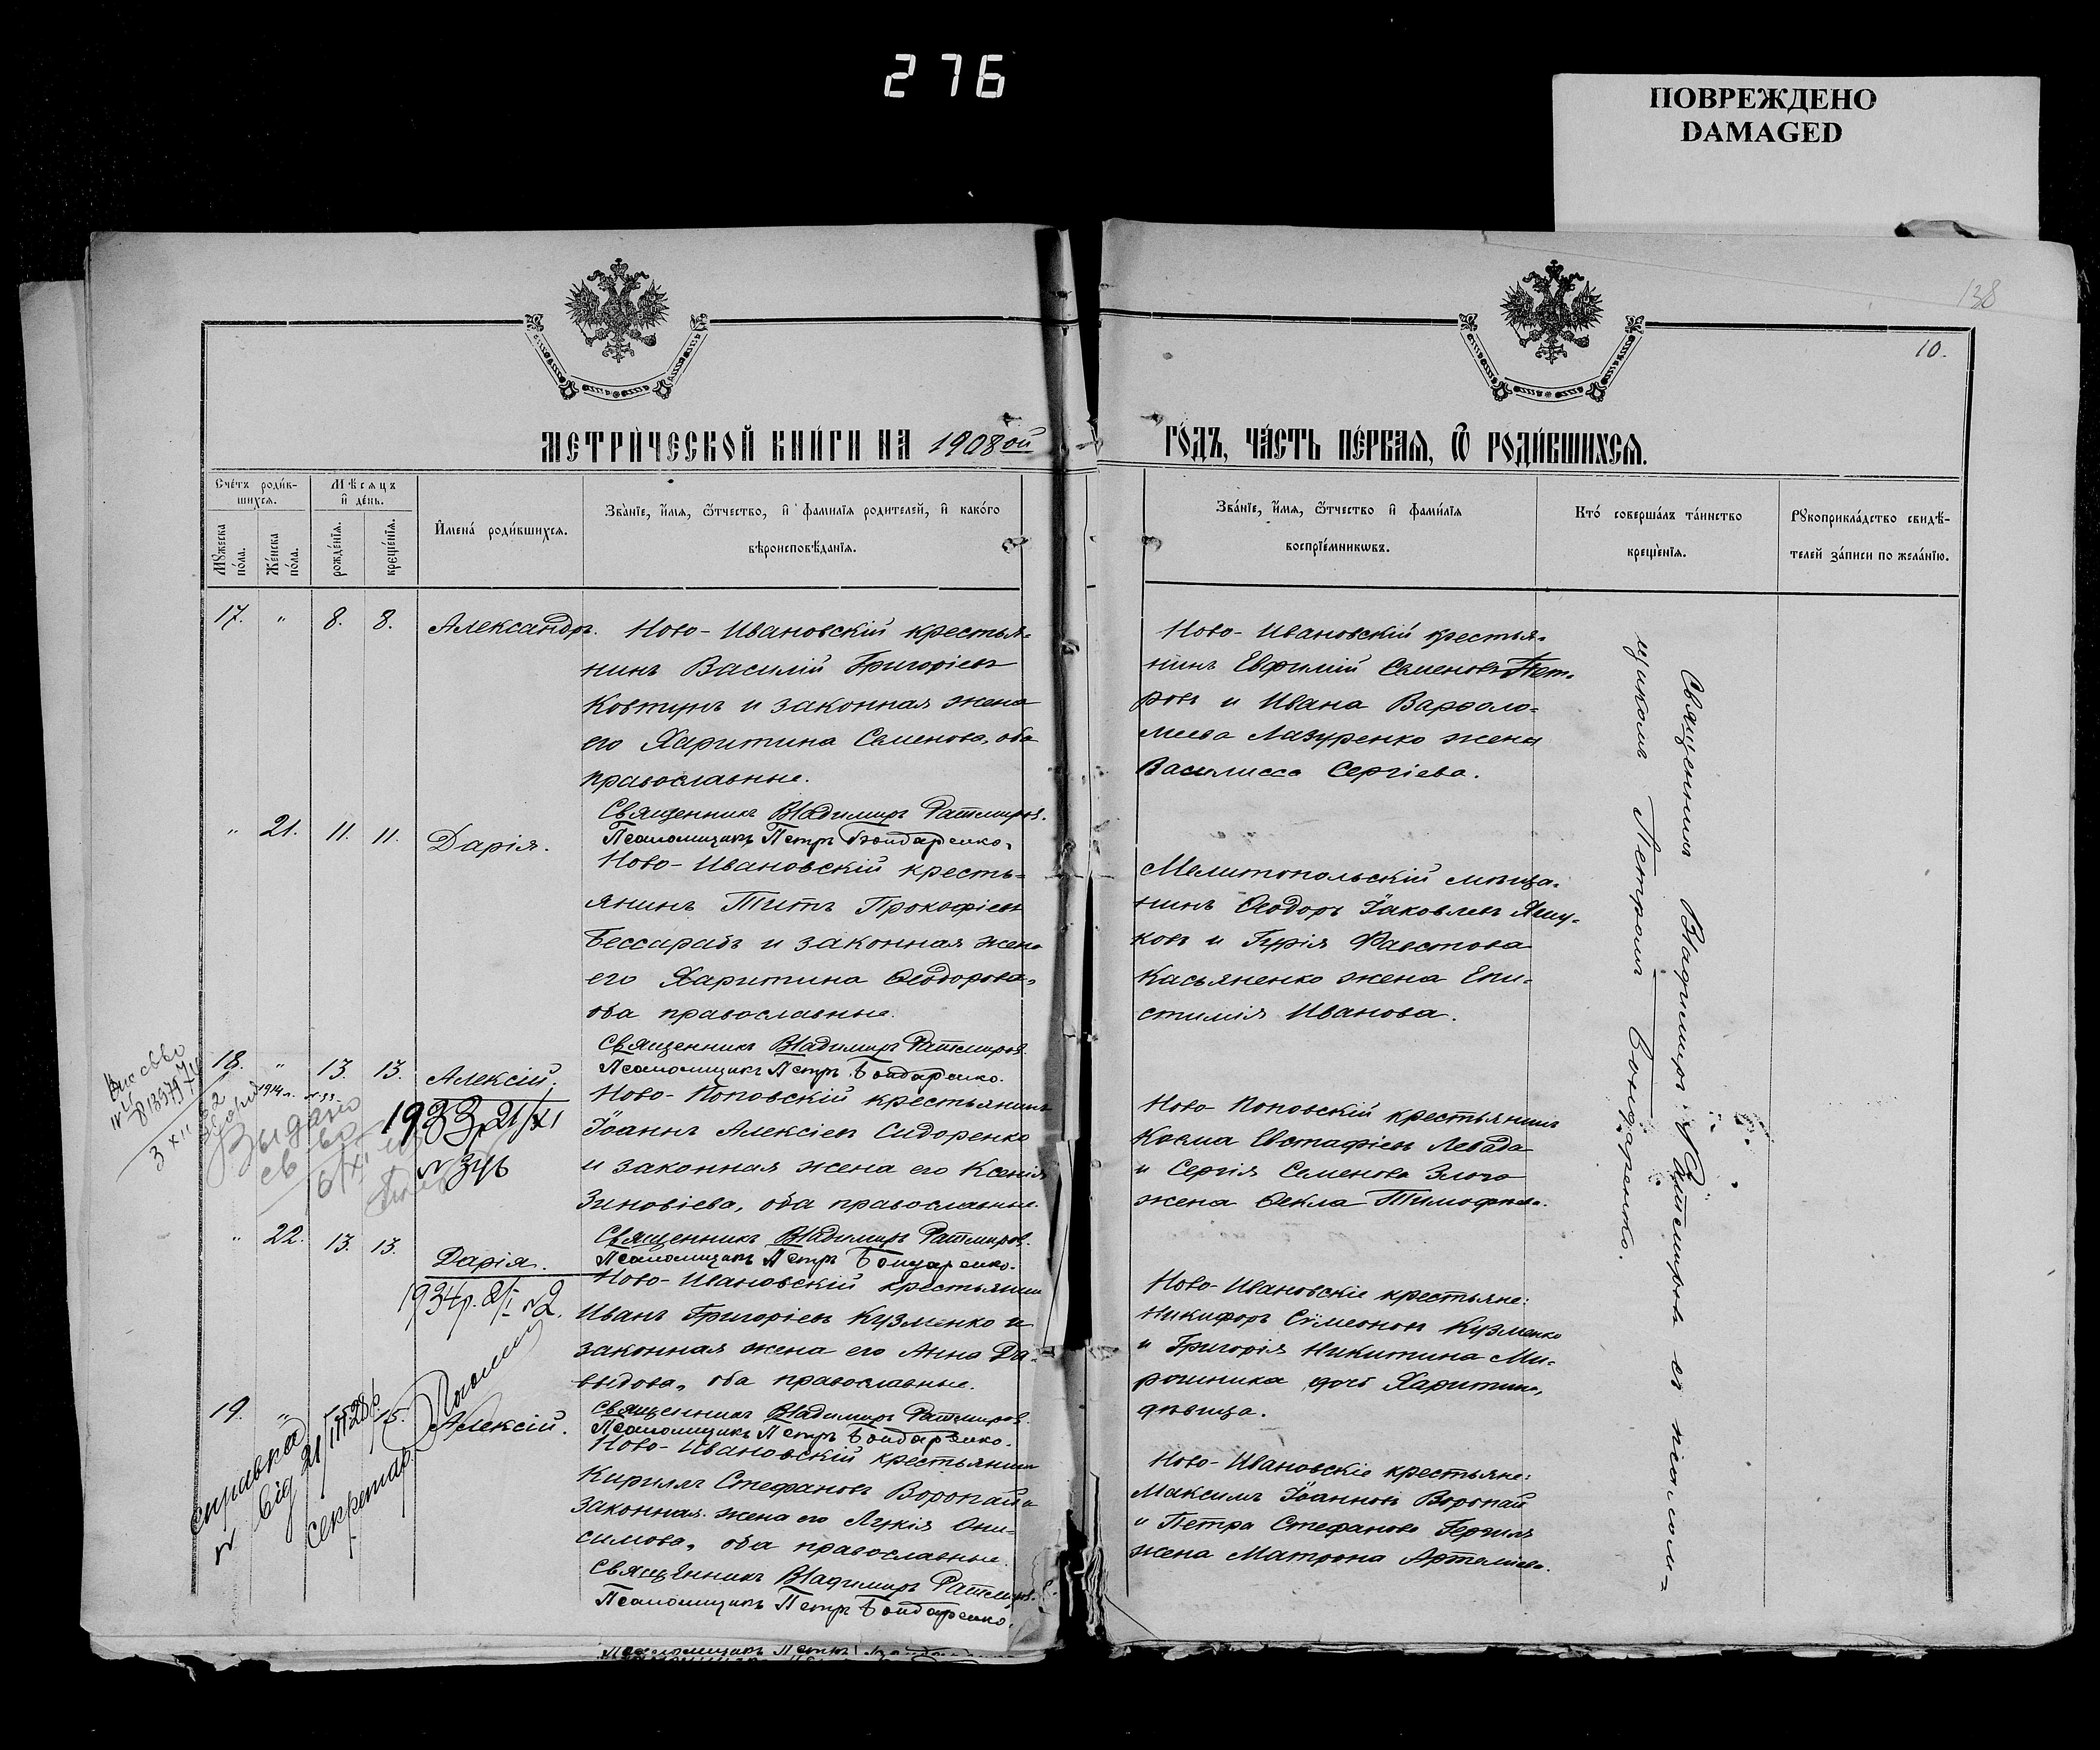 276
ПОВРЕЖДЕНО
DAMAGED
138
10.
МЕТРИ́ЧЕСКОЙ КНИ́ГИ НА 1908ой
ГО́ДЪ, ЧА́СТЬ ПЕ́РВАѦ, Ѿ РОДИ́ВШИХСѦ.
Сче́тъ роди́в-
шихсѧ.
Мѣ́сѧцъ
и҆ де́нь.
Мꙋ́жеска
по́ла.
Же́нска
по́ла.
рожде́нїѧ.
креще́нїѧ.
И҆мена̀ роди́вшихсѧ.
Зва́нїе, и҆́мѧ, ѻ҆́тчество, и҆ фами́лїѧ родителей, и҆ како́го
вѣроисповѣ́данїѧ.
Зва́нїе, и҆́мѧ, ѻ҆́тчество и҆ фами́лїѧ
воспрїе́мникѡвъ.
Кто́ соверша́лъ та́инство
креще́нїѧ.
Рꙋкоприкла́дство свидѣ́-
телей за́писи по жела́нїю.
17. " 8. 8. Александръ.
Ново-Ивановскій крестья-
нинъ Василій Григоріевъ
Ковтунъ и законная жена
его Харитина Семенова, оба
православные.
Священникъ Владимиръ Ратмировъ.
Псаломщикъ Петръ Бондаренко.
Ново-Ивановскій крестья-
нинъ Евфимій Семеновъ Пет-
ровъ и Ивана Варѳоло-
меева Лазуренко жена
Василисса Сергіева.
" 21. 11. 11. Дарія.
Ново-Ивановскій кресть-
янинъ Титъ Прокофіевъ
Бессарабъ и законная жена
его Харитина Ѳеодорова,
оба православные.
Священникъ Владимиръ Ратмировъ.
Псаломщикъ Петръ Бондаренко.
Мелитопольскій мѣща-
нинъ Ѳеодоръ Іаковлевъ Ящу-
ковъ и Гурія Фавстова
Касьяненко жена Епи-
стимія Иванова.
18. " 13. 13. Алексій.
1933 р 21/XI
№ 346
Выдано
св-во
3 XII
Ново-Поповскій крестьянинъ
Іоаннъ Алексіевъ Сидоренко
и законная жена его Ксенія
Зиновіева, оба православные.
Священникъ Владимиръ Ратмировъ.
Псаломщикъ Петръ Бондаренко.
Ново-Поповскій крестьянинъ
Косма Евстафіевъ Левада
и Сергія Семенова Злого
жена Ѳекла Тимофеева.
" 22. 13. 13. Дарія.
1934 р. 2/I №2.
Ново-Ивановскій крестьянинъ
Иванъ Григоріевъ Кузменко и
законная жена его Анна Да-
выдова, оба православные.
Священникъ Владимиръ Ратмировъ.
Псаломщикъ Петръ Бондаренко.
Ново-Ивановскіе крестьяне:
Никифоръ Симеоновъ Кузменко
и Григорія Никитина Ми-
рошника дочь Харитина,
дѣвица.
19. " 15. Алексій.
справка
№ від
секретар
Ново-Ивановскій крестьянинъ
Кириллъ Стефановъ Воропай и
законная жена его Лукія Они-
симова, оба православные.
Священникъ Владимиръ Ратмировъ.
Псаломщикъ Петръ Бондаренко.
Ново-Ивановскіе крестьяне:
Максимъ Іоанновъ Воропай
и Петра Стефанова
жена Матрона Артемиева.
Священникъ Владимиръ Ратмировъ съ псалом-
щикомъ Петромъ Бондаренко.
Псаломщикъ Петръ